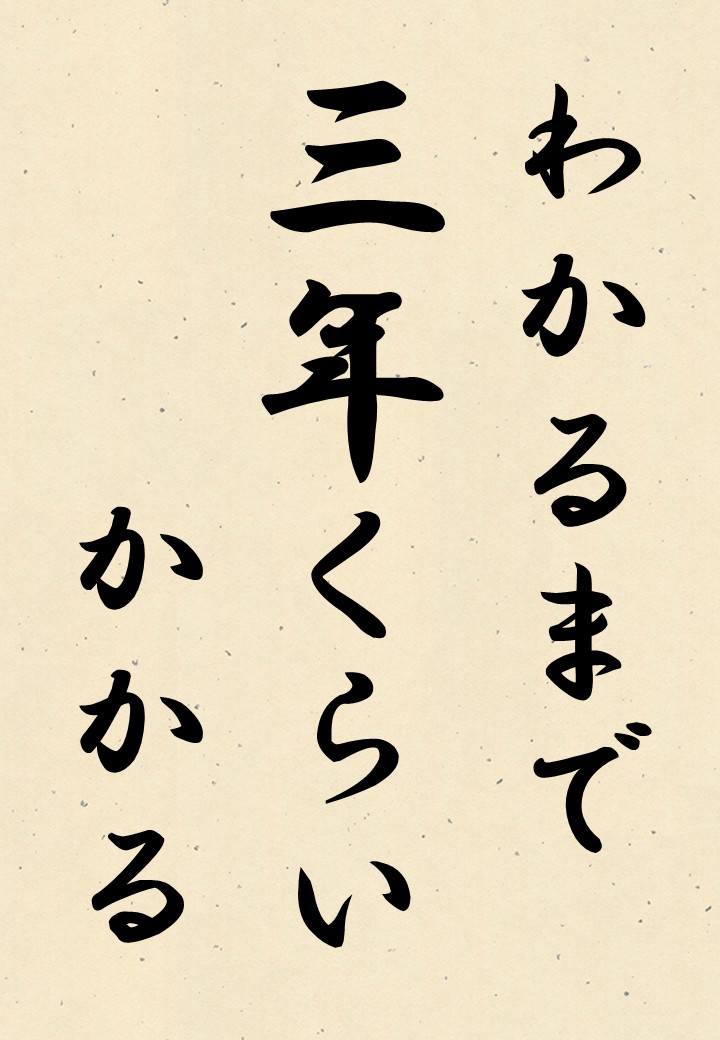 わかるまで
三年くらい
かかる